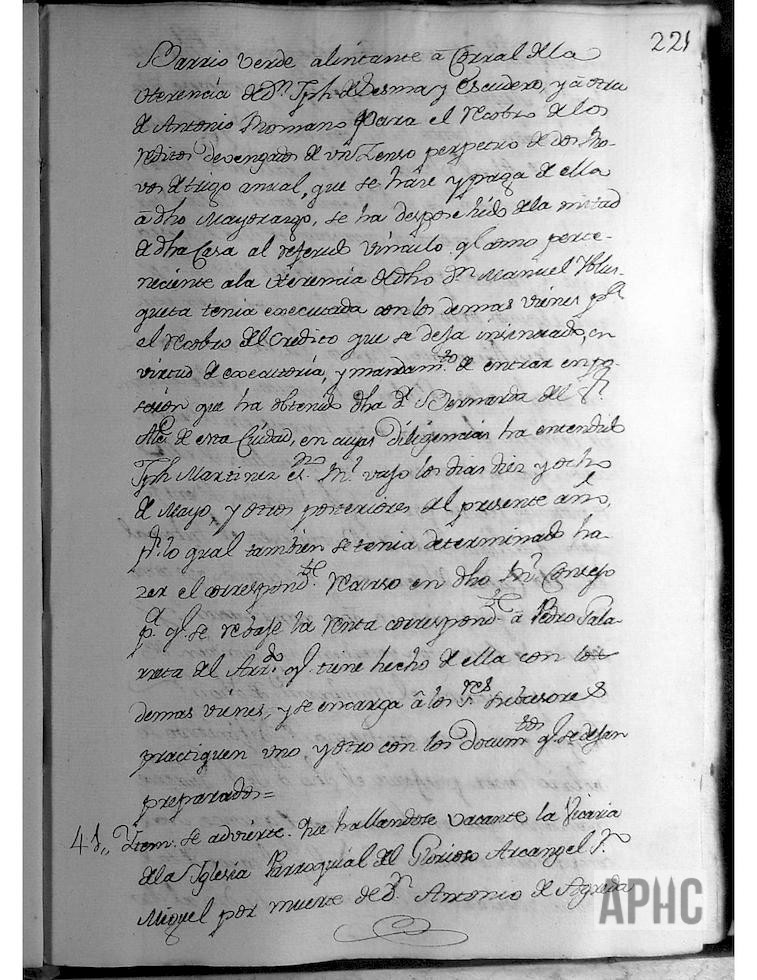 221
Barrio verde alintante à Corral de la
Herencia de Dn. Jph. de Ledesma y Escudero, y à otra
de Antonio Romano para el recobro de los
reditos devengados de un Zenso perpetuo de dos pa-
vos de trigo anual, que se haze y paga de ella
à dho Mayorazgo, se ha desposehido de la mitad
de dha Casa al referido vinculo ql. como perte-
neciente a la Herencia de dho Dn. Manuel
gueta tenia executada con los demas vienes pa.
el recobro del Credito que se deja insinuado, en
virtud de executoria, y mandamto. de entrar en po-
sesion que ha obtenido dha Da. Bernarda del Sr.
Alce. de esta Ciudad, en cuyas diligencias ha entendido
Jph Martinez esno. Rl. vajo los dias diez y ocho
de Mayo, y otros posteriores del presente año,
pr. lo qual tambien se tenia determinado ha-
zer el correspondte. recurso en dho Rl. Consejo
pa. ql. se rebaje la renta correspondte. à Pedro Gala-
rreta del Arrdo. ql. tiene hecho de ella con los
demas vienes, y se encarga à los Sres. subcesores
practiquen uno, y otro con los documtos. ql. se dejan
preparados=
41,, Ytem. se advierte. que hallandose vacante la Vicaria
de la Iglesia Parroquial del Glorioso Arcangel Sn.
Miguel por muerte de Dn. Antonio de Agreda
APHC